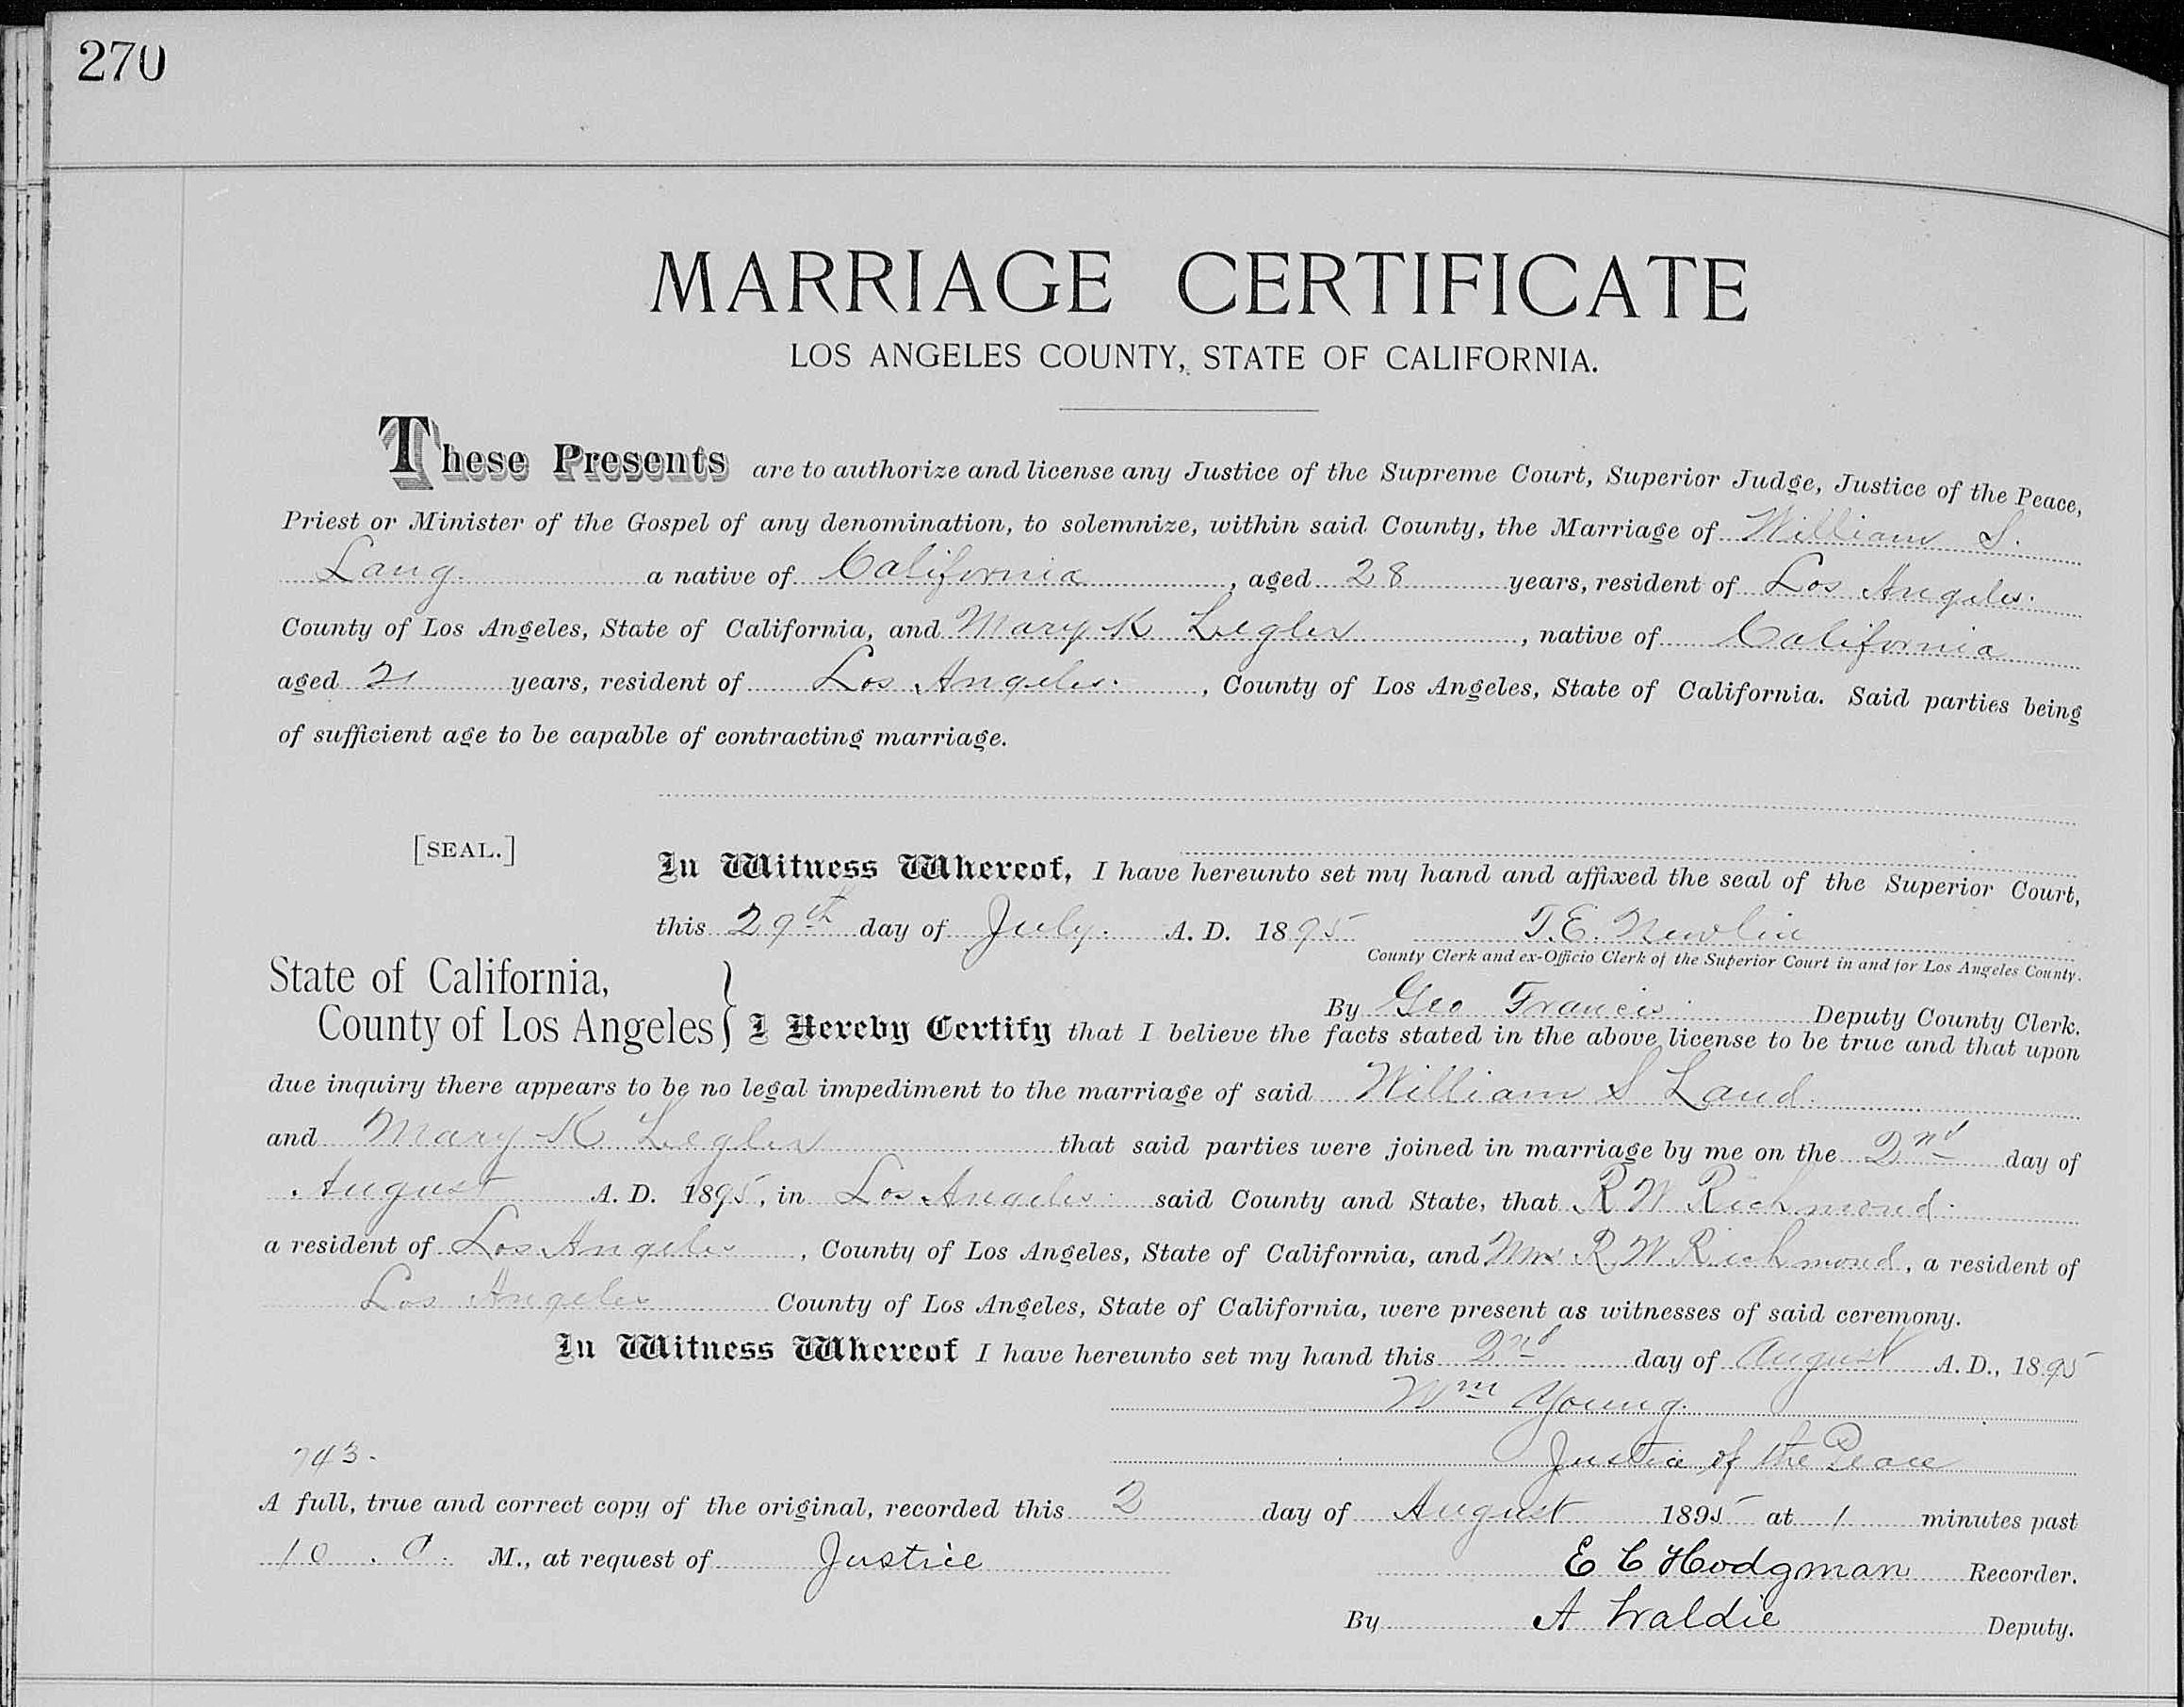 270
MARRIAGE CERTIFICATE
LOS ANGELES COUNTY, STATE OF CALIFORNIA.
These Presents are to authorize and license any Justice of the Supreme Court, Superior Judge, Justice of the Peace,
Priest or Minister of the Gospel of any denomination, to solemnize, within said County, the Marriage of William S.
Laug. a native of California, aged 28 years, resident of Los Angeles.
County of Los Angeles, State of California, and Mary K Legler, native of California
aged 21 years, resident of Los Angeles., County of Los Angeles, State of California. Said parties being
of sufficient age to be capable of contracting marriage.
[SEAL.]
In Witness Whereof, I have hereunto set my hand and affixed the seal of the Superior Court,
this 29th day of July. A. D. 1895 T. E. Newlin
County Clerk and ex-Officio Clerk of the Superior Court in and for Los Angeles County.
State of California,
By Geo Francis Deputy County Clerk.
County of Los Angeles } I Hereby Certify that I believe the facts stated in the above license to be true and that upon
due inquiry there appears to be no legal impediment to the marriage of said William S Laud.
and Mary K Legler that said parties were joined in marriage by me on the 2nd day of
August A. D. 1895, in Los Angeles said County and State, that R W Richmond.
a resident of Los Angeles, County of Los Angeles, State of California, and Mrs R W Richmond, a resident of
Los Angeles County of Los Angeles, State of California, were present as witnesses of said ceremony.
In Witness Whereof I have hereunto set my hand this 2nd day of August A. D., 1895
Wm Young.
743.
Justice of the Peace
A full, true and correct copy of the original, recorded this 2 day of August 1895 at 1 minutes past
10 M., at request of Justice E C Hodgman Recorder.
By A Waldie Deputy.